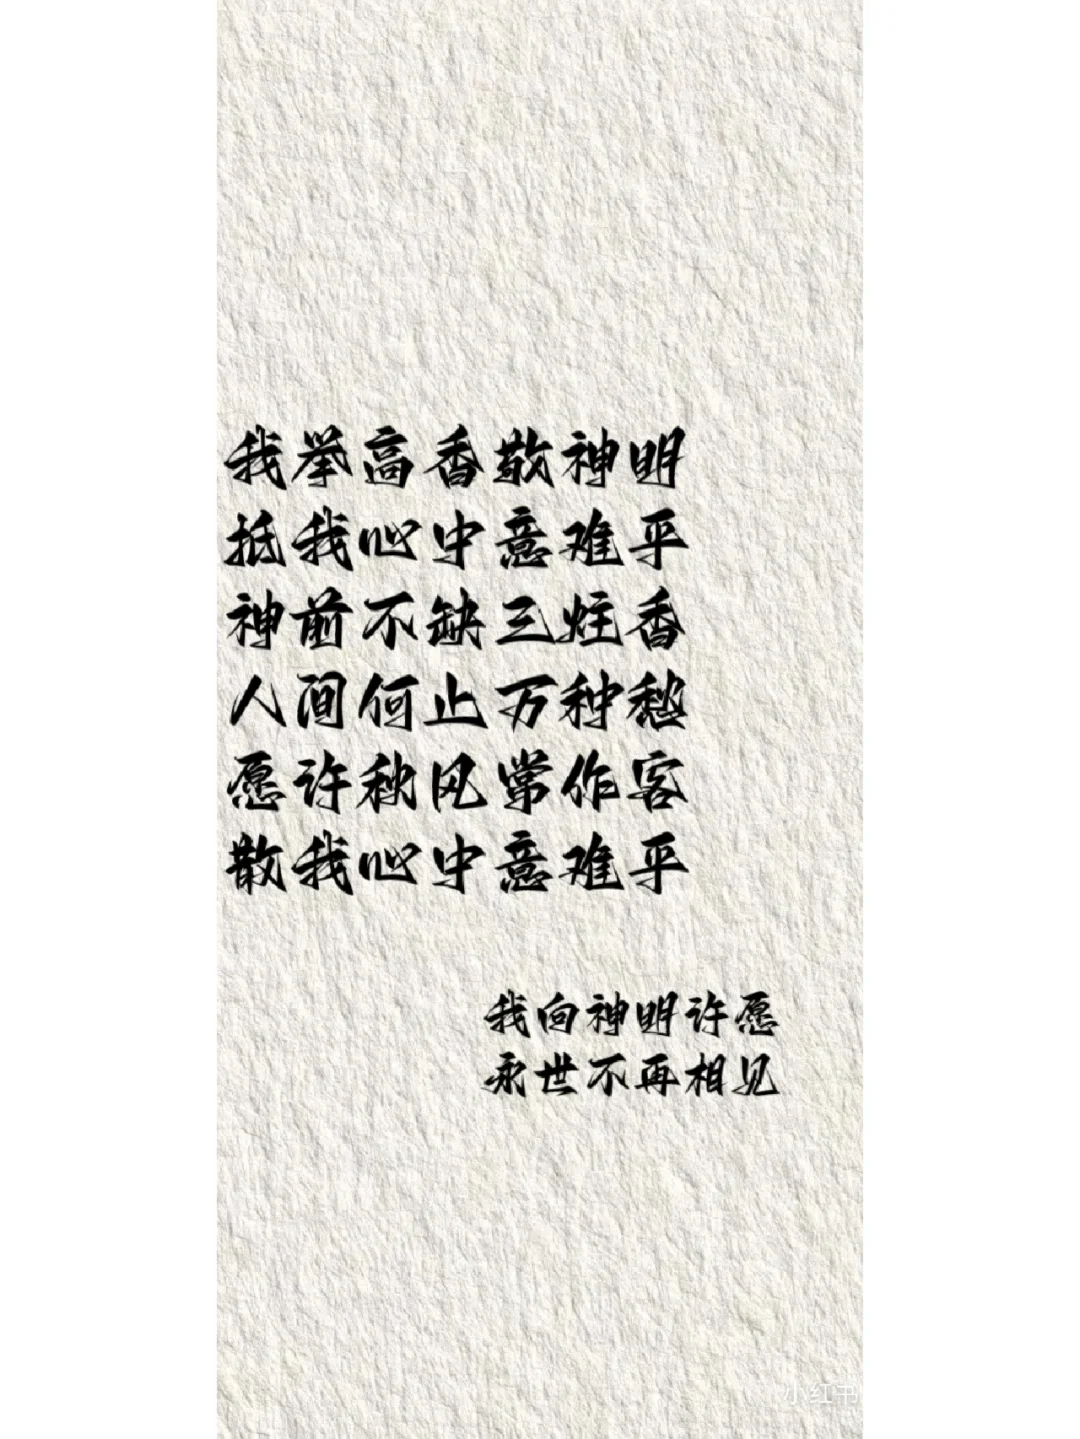 我举高香敬神明
抵我心中意难平
神前不缺三炷香
人间何止万种愁
愿许秋风常作客
散我心中意难平
我向神明许愿
永世不再相见
小红书